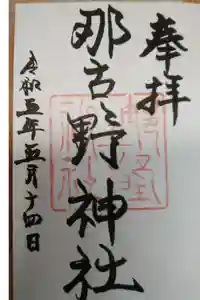 奉拝
那古野神社
令和五年五月十四日